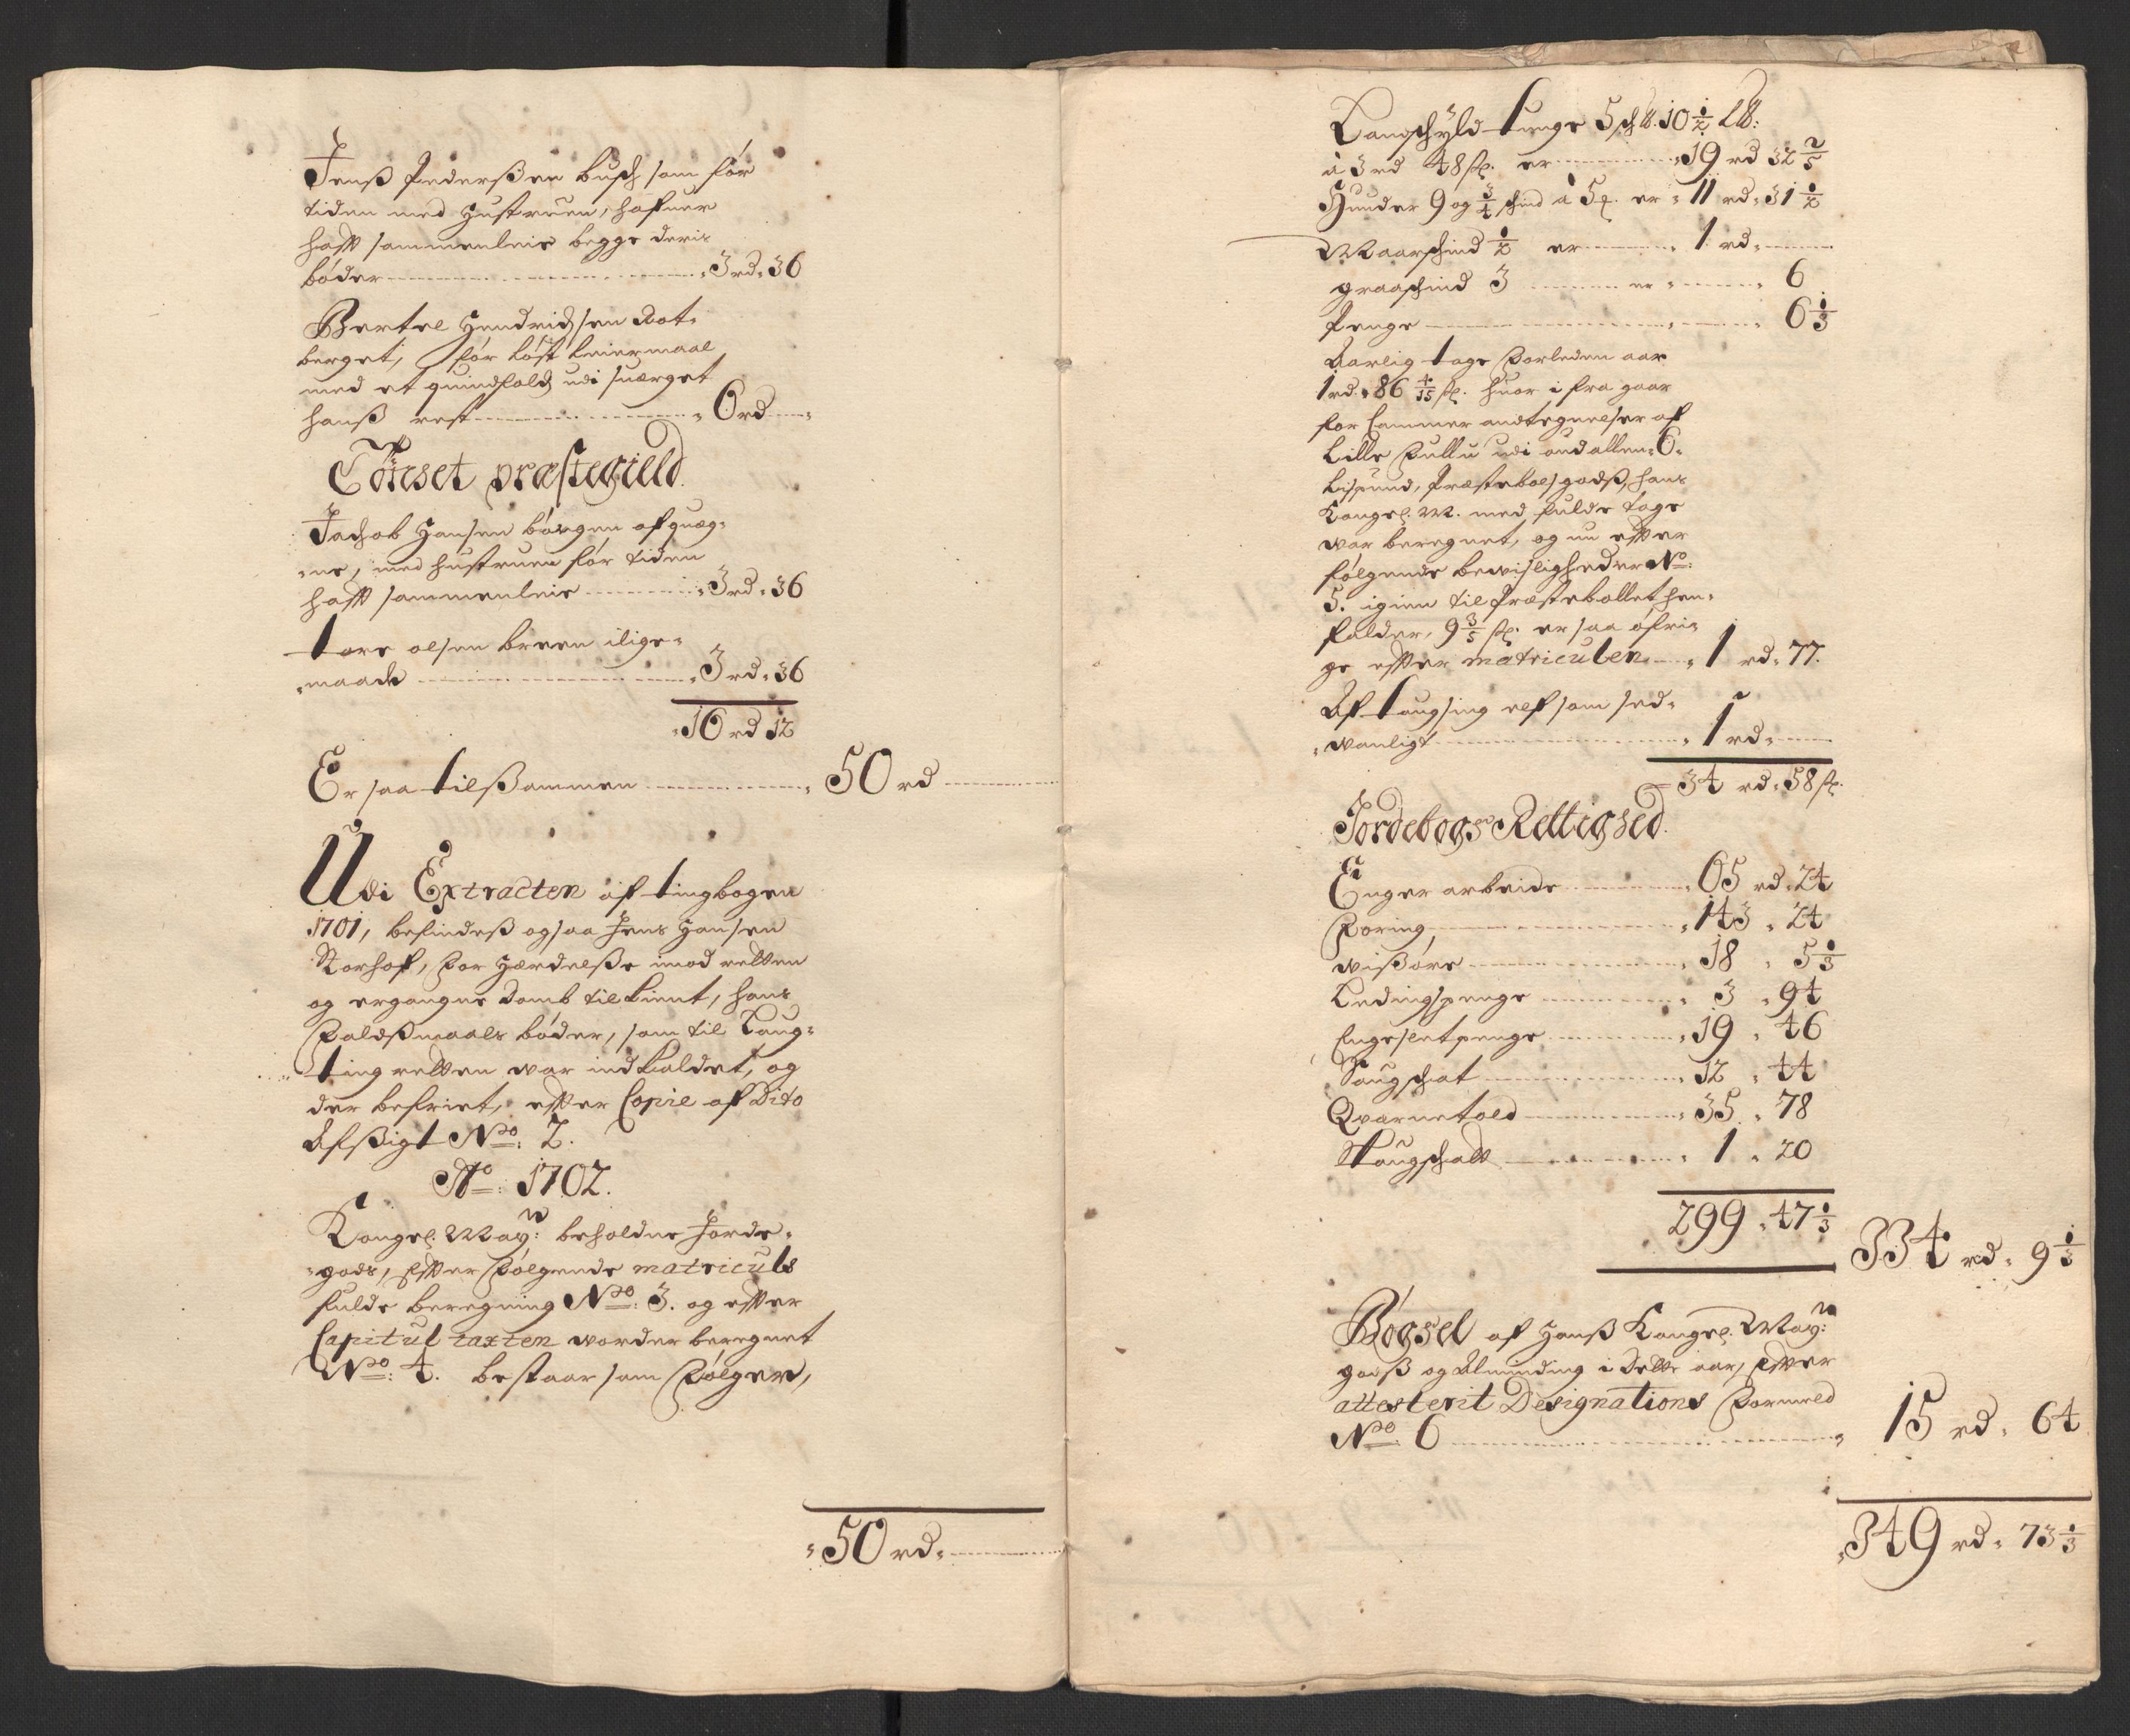 Jenß Pederßen busch som før
tiden med Hustruen, hafuer
hafft sammenleie begge deris
bøder 3 rd 36
Bertel Hendrichsen Rot-
berget, for løst Leiermaal
med et quindfolch udi suerget
hanß rest 6 rd
Tønset præstegield.
Jachob Hansen børgen af quæg-
ne, med hustruen før tiden
hafft sammenleie 3 rd 36
tore olsen breen ilige-
maade 3 rd 36
16 rd 12
Er saa tilßammen 50 rd
Udi Extracten af tingbogen
1701, befindeß ogsaa Jens Hansen
Storhof, for Hærdelße imod retten
og ergangne domb til Kient, hans
faldßmaals bøder, som til Laug-
tingretten war indkaldet, og
der befriet, efter Copie af Dito
Afßigt No: 2.
Ao: 1702.
Kongel. May: beholdne Jorde-
gods, efter følgende matriculs
fulde beregning No: 3. og efter
Capitul taxten worder beregnet
No: 4. bestaar som følger,
50 rd
Landschyld tunge 5 sch℔. 10 1/2 L℔:
a 3 rd 48 sk. er 19 rd 32 2/5
Hunder 9 og 3/4 schind a 5 . er 11 rd 31 1/2
Maarschind 1/2 er 1 rd
graaschind 3 er 6
Penge 6 1/3
Aarlig tage forleden aar
1 rd 86 4/15 sk. huor i fra gaar
for Cammer andtegnelser af
Lille Pullu udi audallen 6
Lispund, Præstebol godß, hans
Kongel. M. med fulde tage
war beregnet, og nu efter
følgende bewisligheder No:
5. igien til Præstebollet hen-
falder, 9 3/5 sk. er saa øfri-
ge efter matriculen 1 rd 77.
Af taugsing elf som sed-
wanligt 1 rd
34 rd 58 sk.
Jordebogs Rettighed.
Enger arbeide 65 rd 24
Foring 143 24
wißøre 18 5 1/3
Ledingspenge 3 94
Engesletpenge 19 46
Saugschat 12 44
Qvarnetold 35 78
Taugschatt 1 20
299 47 1/3
334 rd 9 1/3
Bøgsel af Hanß Kongel. May:
godß og Alminding i dette aar, efter
attesterit Designations formeld
No. 6 15 rd 64
349 rd 73 1/3